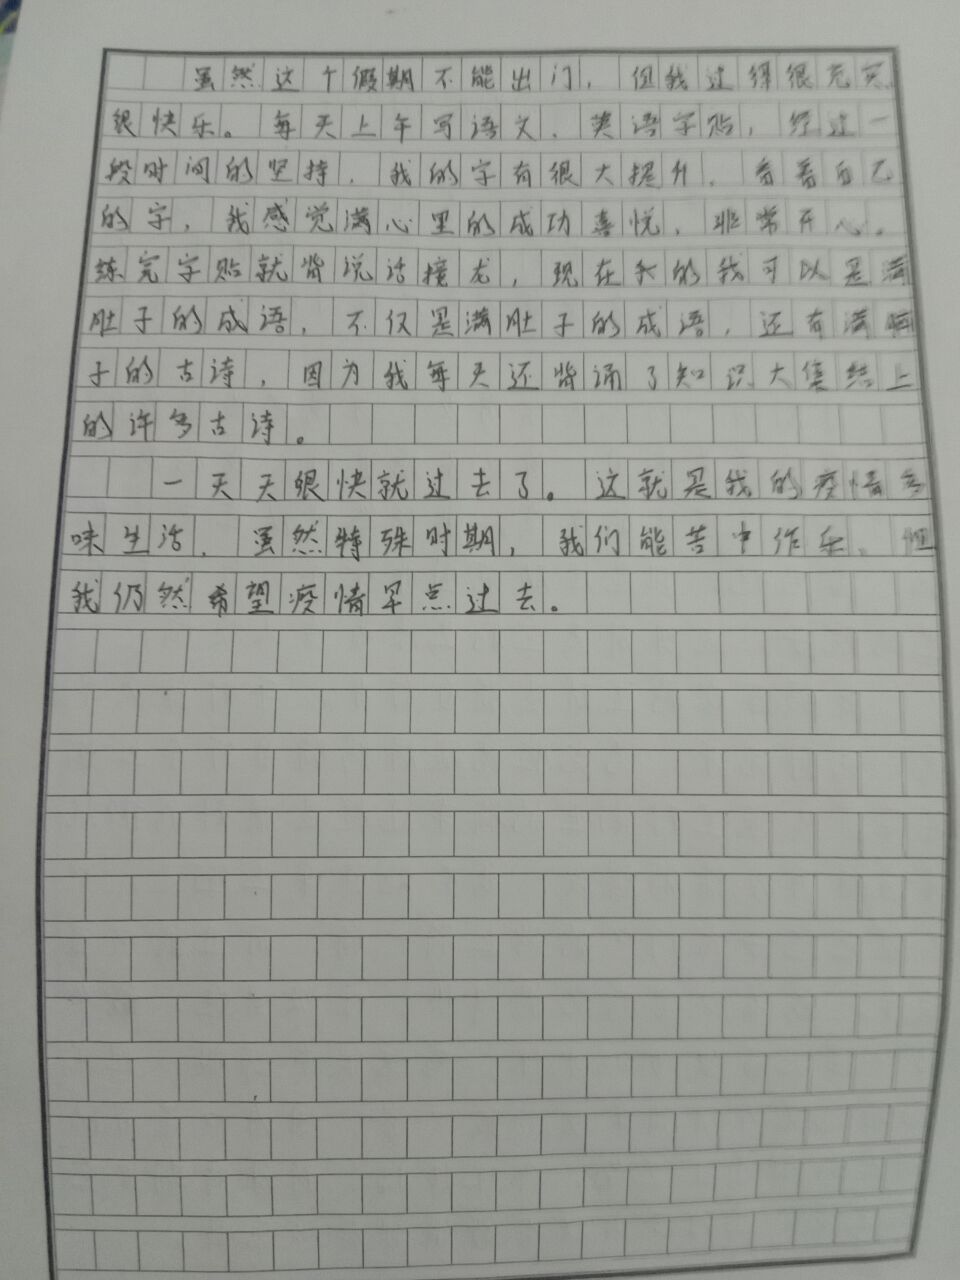 虽然这个假期不能出门，但我过得很充实
很快乐。每天上午写语文、英语字贴，经过一
段时间的坚持，我的字有很大提升，看着自己
的字，我感觉满心里的成功喜悦，非常开心。
练完字贴就背说话接龙，现在我的我可以是满
肚子的成语，不仅是满肚子的成语，还有满
子的古诗，因为我每天还背诵了知识大集结上
的许多古诗。
一天天很快就过去了。这就是我的疫情多
味生活，虽然特殊时期，我们能苦中作乐，但
我仍然希望疫情早点过去。